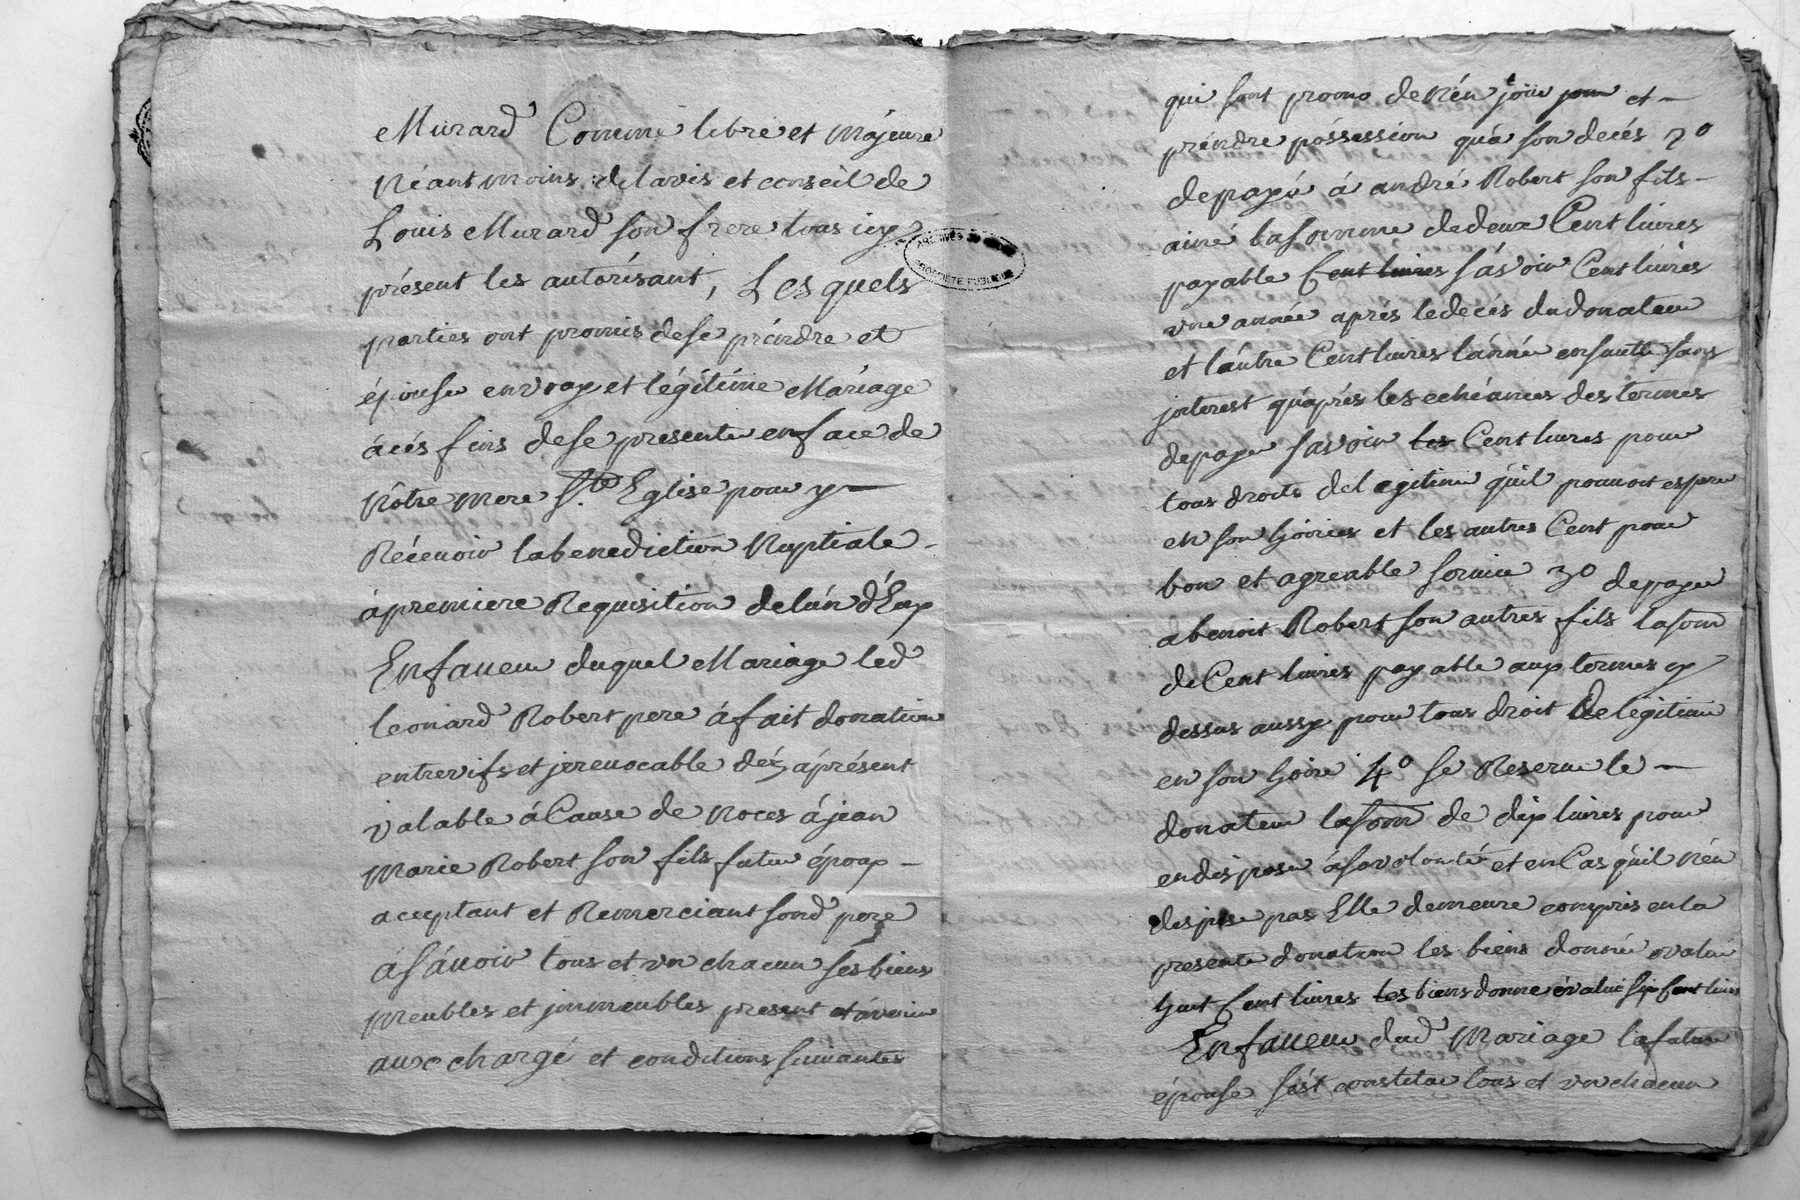 Murard Comme libre et majeure
Néantmoins delavis et conseil de
Louis Murard son frere tous icy
présent les autorisant, Lesquels
parties ont promis dese prendre et
épouser envray et légitime Mariage
àcés fins dese presenter enface de
Nôtre mere Ste Eglise pour y
Récevoir labenediction Nuptiale
àpremiere Requisition delún d'Eux
Enfaveur duquel Mariage led
leonard Robert pere áfait donation
entrevifs et jrrevocable déz àprésent
valable áCause de Noces àjean
Marie Robert son fils futur époux
acceptant et Remerciant sond pere
ásávoir tous et vn chacun sés biens
meubles et jmmeubles present etávenir
aux chargé et conditions suivantes
ARCHIVES DU
PROPRIETE PUBLIQUE
qui sont promo deNén joüir et
préndre póssession quà son decés 2o
depayé á andré Robert son fils
ainé lasomme dedeux Cent livres
payable Cent livres sávoir Cent livres
vne année aprés ledecés dudonateur
et láutre Cent livres lánnée ensuitte sans
jnterest quáprés les echéances des termes
depayer savoir les Cent livres pour
tous droits delegitime quil pouvoit esperer
en son hoiries et les autres Cent pour
bon et agreable service 3o depayer
abenoit Robert son autres fils lasom
deCent livres payable aux termes cy
dessus aussy pour tous droit Delegitime
en son hoire 4o se Reserve le
donateur lasom de dix livres pour
endisposer ásavolonté et enCas quil Nén
dispose pas Elle demeure compris enla
presente donation les biens donné evalué
huit Cent livres les biens donne évalué six Cent livres
Enfaveur dud Mariage lafuture
épouse sést constitué tous et vnchacun